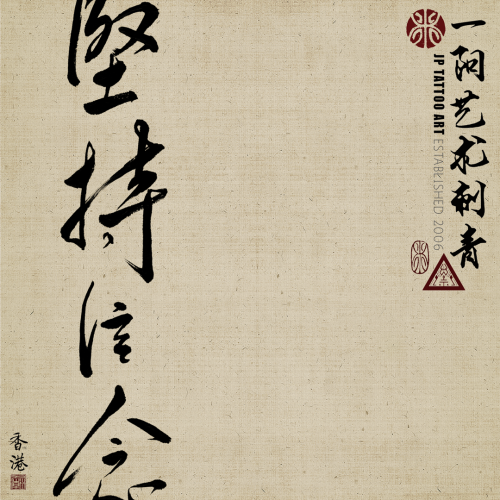 一阳艺术刺青
JP TATTOO ART ESTABLISHED 2006
堅持信念
香港